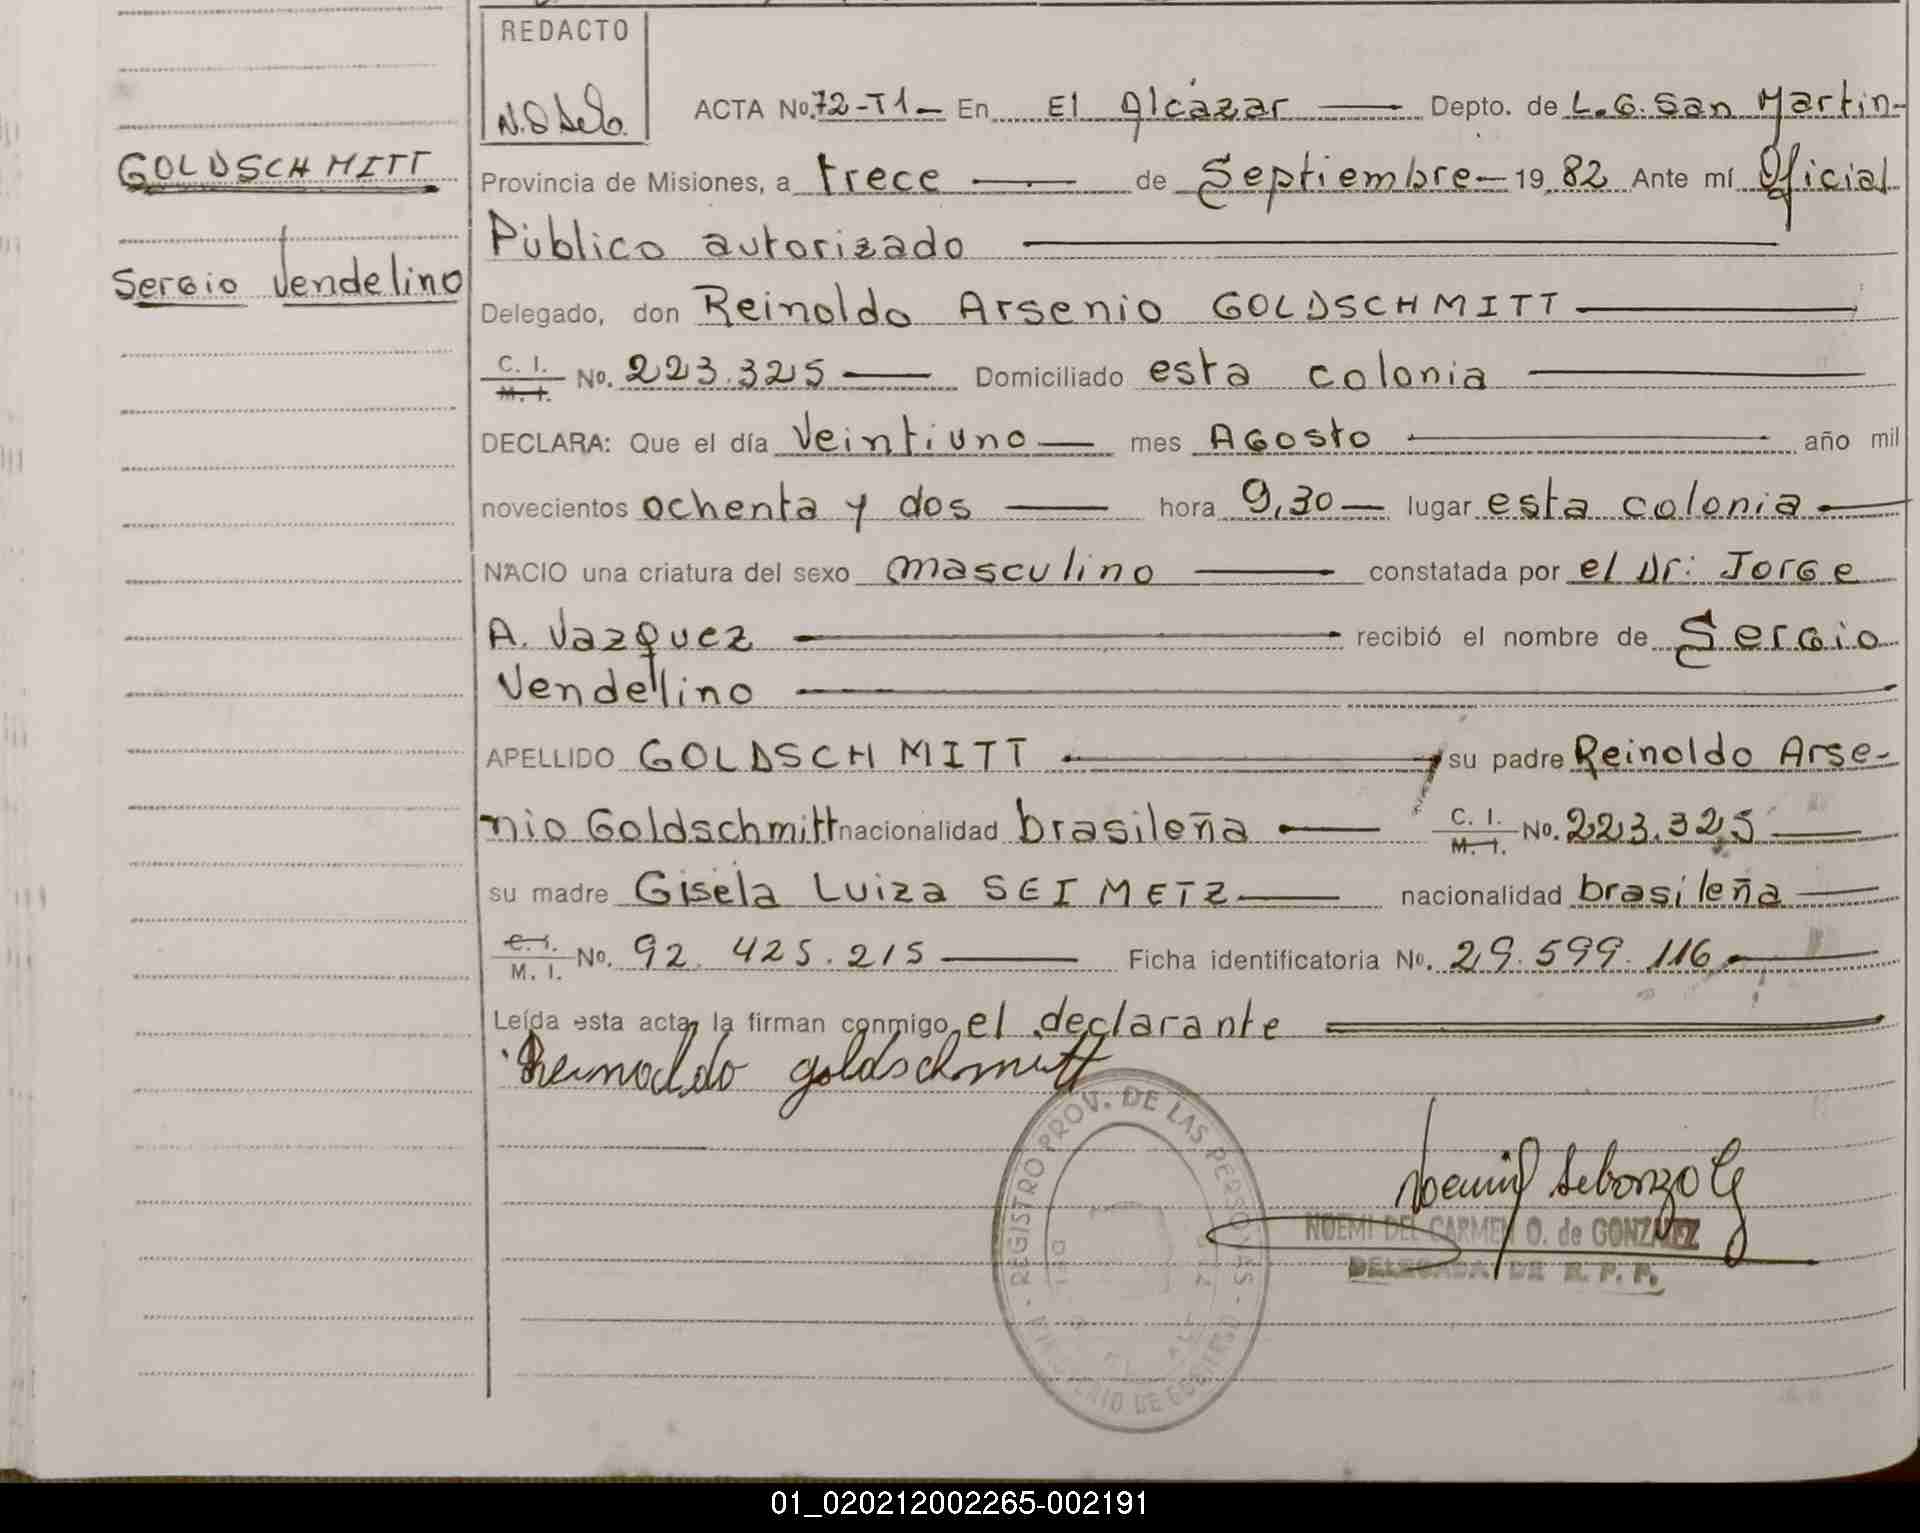 REDACTO
ACTA No. 72-T1- En El Alcázar Depto. de L.G. San Martin-
GOLDSCHMITT
Provincia de Misiones, a trece de Septiembre- 19 82 Ante mí Oficial
Público autorizado
Sergio Vendelino
Delegado, don Reinoldo Arsenio GOLDSCHMITT
C. I.
M. I. No. 223.325 Domiciliado esta colonia
DECLARA: Que el día veintiuno mes Agosto año mil
novecientos ochenta y dos hora 9,30 lugar esta colonia
NACIO una criatura del sexo masculino constatada por el Dr: Jorge
A. Vazquez recibió el nombre de Sergio
Vendelino
APELLIDO GOLDSCHMITT su padre Reinoldo Arse-
nio Goldschmitt nacionalidad brasileña C. I.
M. I. No. 223.325
su madre Gisela Luiza SEIMETZ nacionalidad brasileña
C. I.
M. I. No. 92.425.215 Ficha identificatoria No. 29.599.116
Leída esta acta, la firman conmigo, el declarante
Reinoldo goldschmitt
REGISTRO PROV. DE LAS PERSONAS
MINISTERIO DE GOBIERNO
NOEMI DEL CARMEN O. de GONZALEZ
DELEGADA DE R. P. P.
01_020212002265-002191